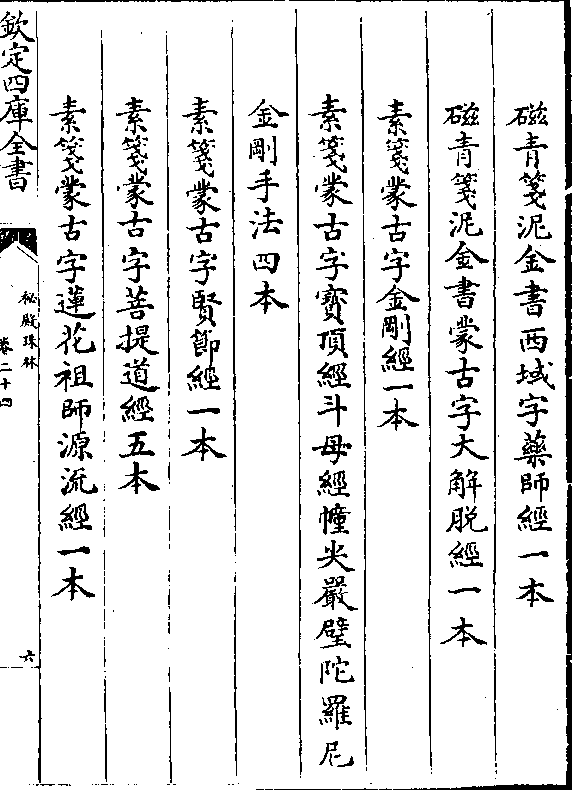 磁青箋泥金書西域字藥師經一本
磁青箋泥金書蒙古字大解脱經一本
素箋蒙古字金剛經一本
素箋蒙古字寶頂經斗母經幢尖嚴壁陀羅尼
金剛手法四本
素箋蒙古字賢節經一本
素箋蒙古字菩提道經五本
素箋蒙古字蓮花祖師源流經一本
欽定四庫全書
秘殿珠林
卷二十四
六